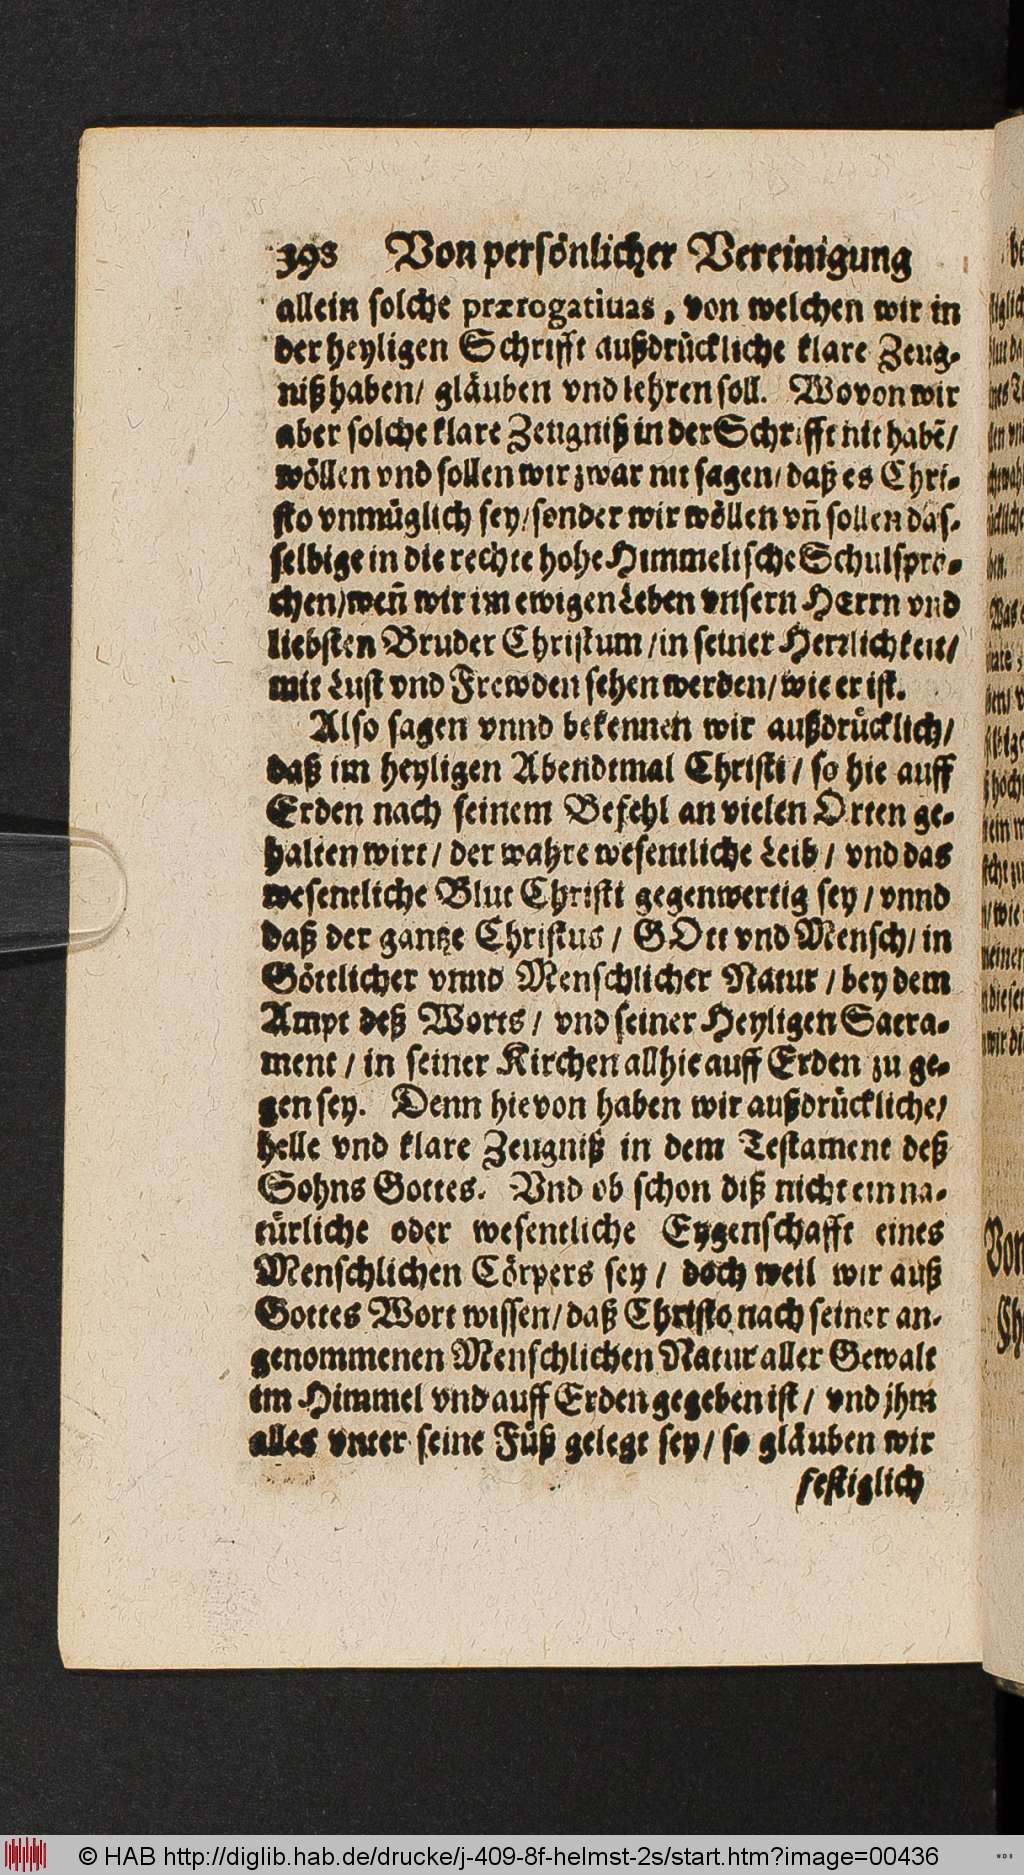 398 Von persönlicher Vereinigung
allein solche prærogatiuas, von welchen wir in
der heyligen Schrifft außdrückliche klare Zeug-
niß haben/ gläuben vnd lehren soll. Wovon wir
aber solche klare Zeugniß in der Schrifft nit habẽ/
wöllen vnd sollen wir zwar nit sagen/ daß es Chri-
sto vnmüglich sey/ sonder wir wöllen vñ sollen das-
selbige in die rechte hohe Himmelische Schul spro-
chen/ weñ wir im ewigen Leben vnsern HErrn vnd
liebsten Bruder Christum/ in seiner Herrlichkeit/
mit Lust vnd Frewden sehen werden/ wie er ist.
Also sagen vnnd bekennen wir außdrücklich/
daß im heyligen Abendtmal Christi/ so hie auff
Erden nach seinem Befehl an vielen Orten ge-
halten wirt/ der wahre wesentliche Leib/ vnd das
wesentliche Blut Christi gegenwertig sey/ vnnd
daß der gantze Christus/ GOtt vnd Mensch/ in
Göttlicher vnnd Menschlicher Natur/ bey dem
Ampt deß Worts/ vnd seiner Heyligen Sacra-
ment/ in seiner Kirchen allhie auff Erden zu ge-
gen sey. Denn hievon haben wir außdrückliche/
helle vnd klare Zeugniß in dem Testament deß
Sohns Gottes. Vnd ob schon diß nicht ein na-
türliche oder wesentliche Eygenschafft eines
Menschlichen Cörpers sey/ doch weil wir auß
Gottes Wort wissen/ daß Christo nach seiner an-
genommenen Menschlichen Natur aller Gewalt
im Himmel vnd auff Erden gegeben ist/ vnd jhm
alles vnter seine Füß gelegt sey/ so gläuben wir
festiglich
© HAB http://diglib.hab.de/drucke/j-409-8f-helmst-2s/start.htm?image=00436